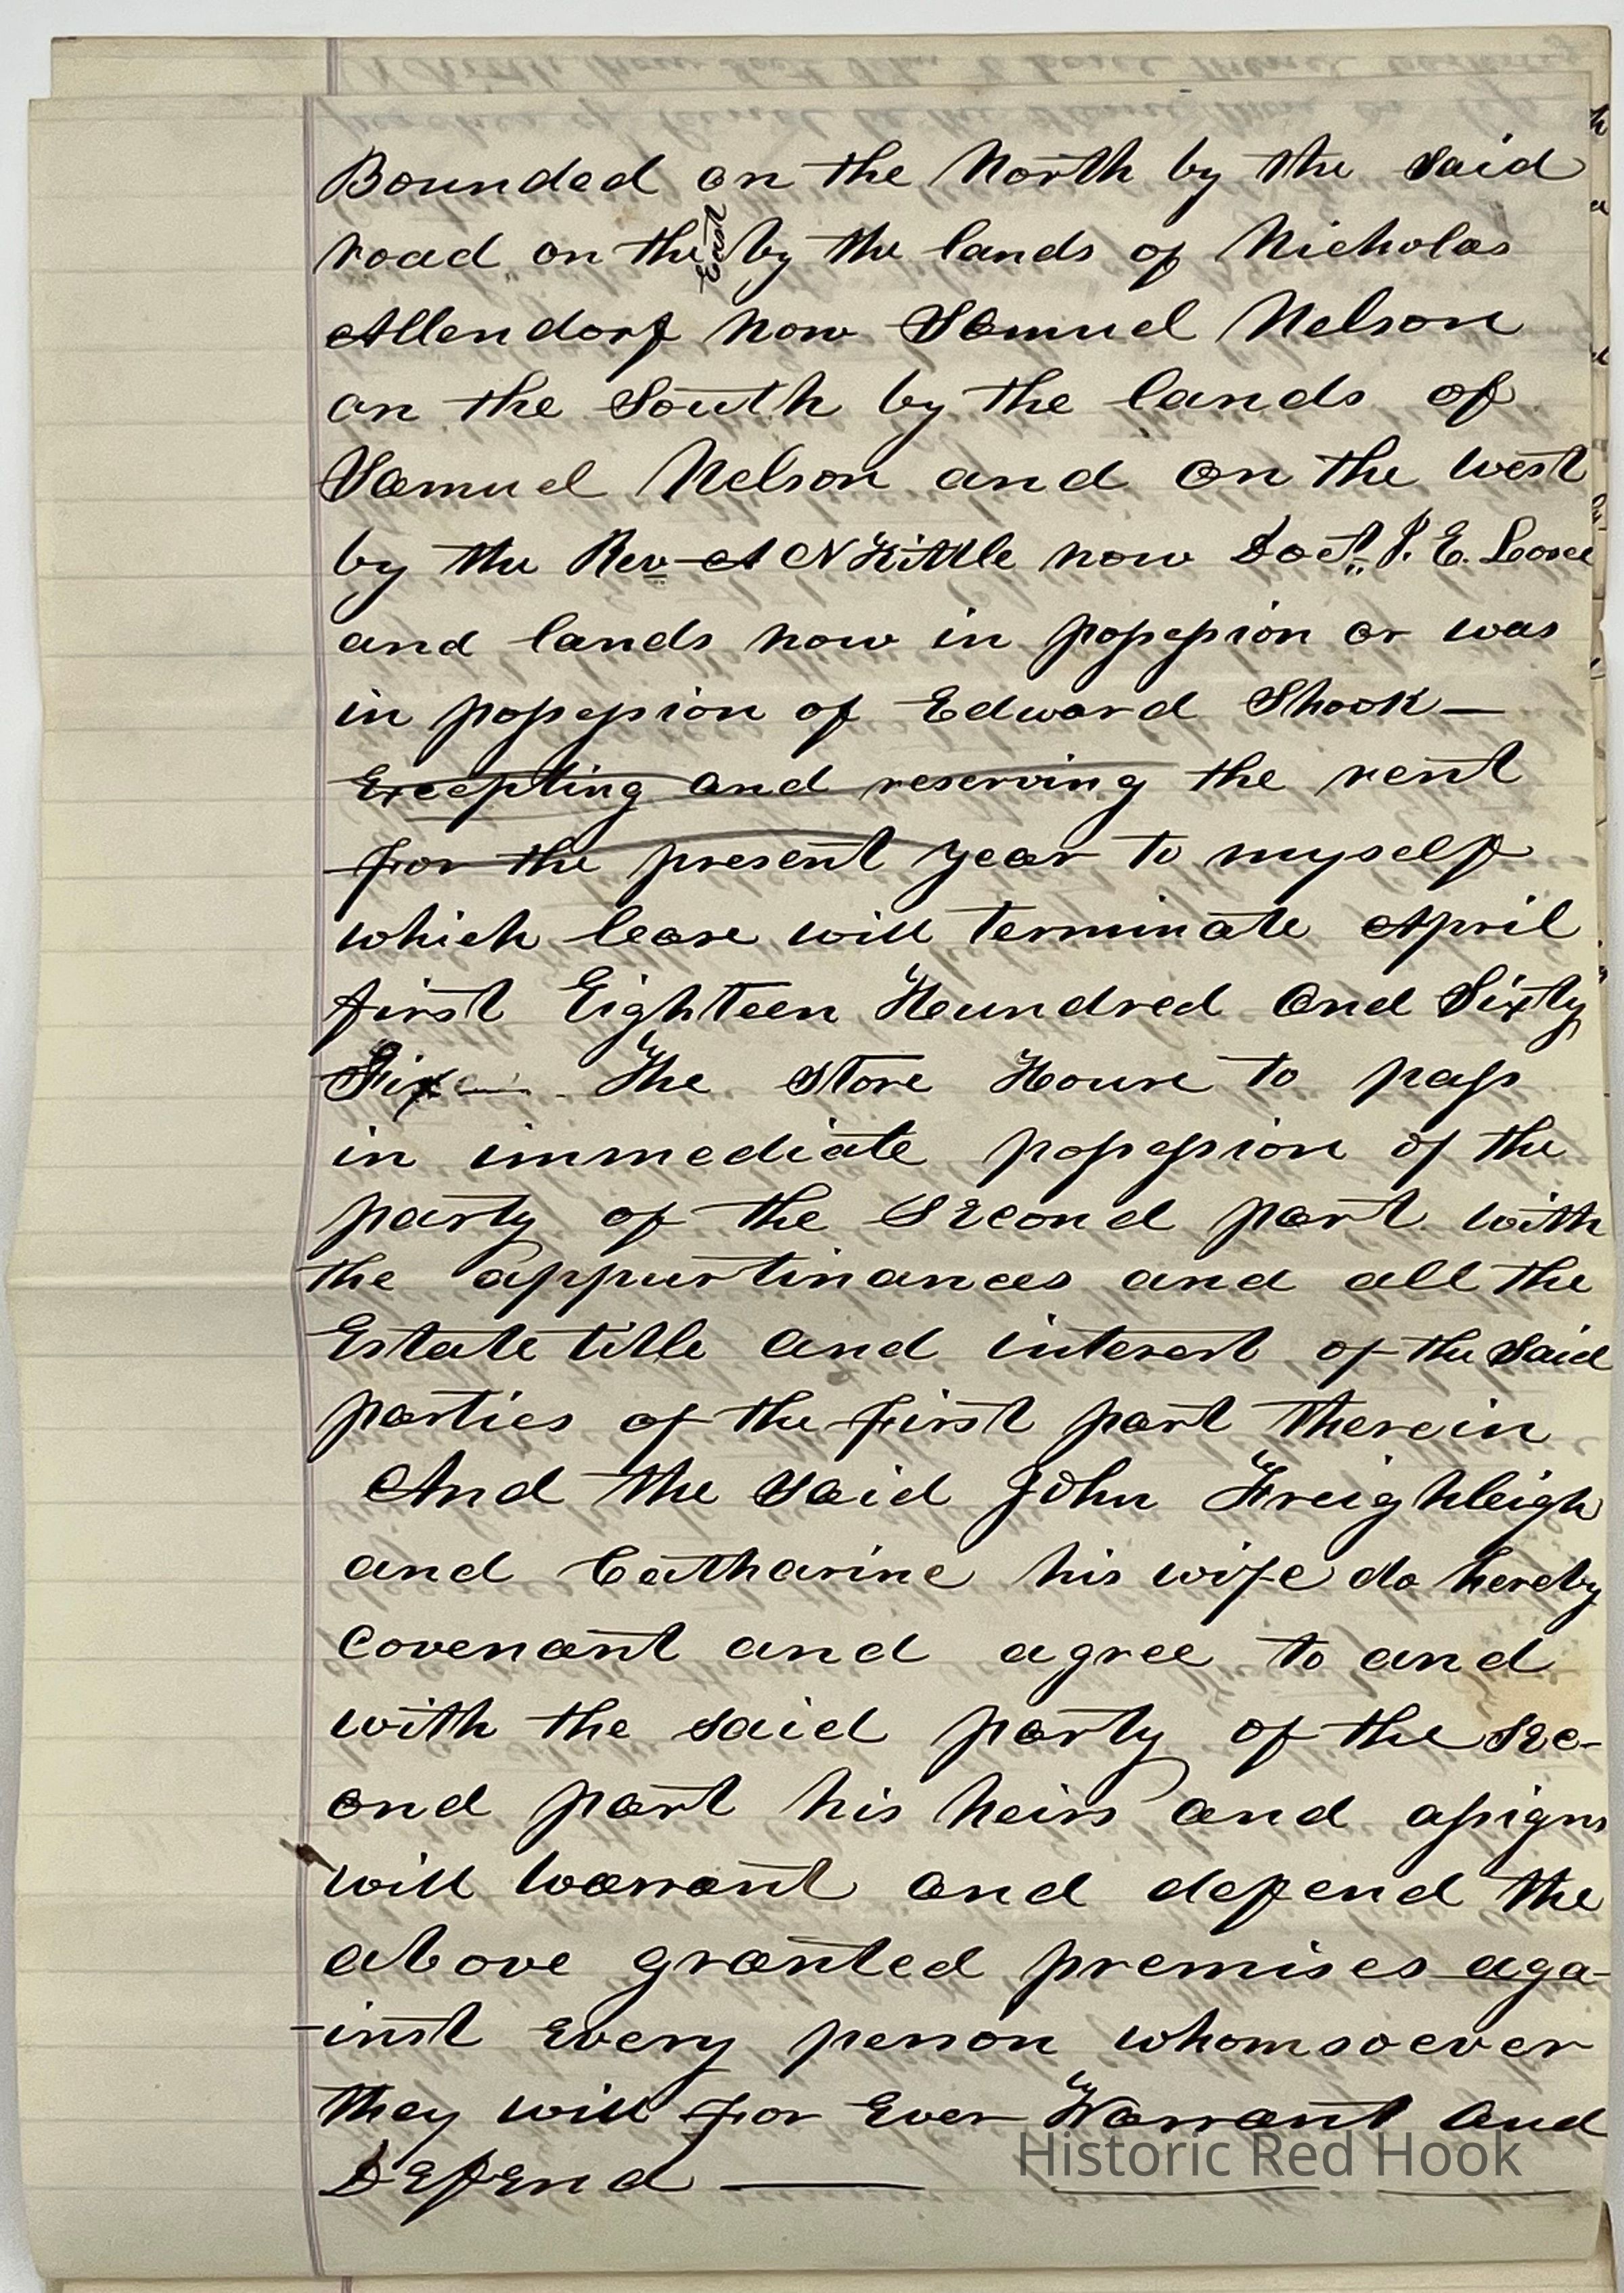 Bounded on the North by the said
road on the East by the lands of Nicholas
Allendorf now Samuel Nelson
on the South by the lands of
Samuel Nelson and on the west
by the Rev A N Kittle now Doct. J. E. Losee
and lands now in possession or was
in possession of Edward Shook—
Excepting and reserving the rent
for the present year to myself
which lease will terminate April
first Eighteen Hundred and Sixty
Six — The store House to pass
in immediate possession of the
party of the second part with
the appurtinances and all the
Estate title and interest of the said
parties of the first part therein
And the said John Freighleigh
and Catharine his wife do hereby
covenant and agree to and
with the said party of the sec-
ond part his heirs and assigns
will warrant and defend the
above granted premises aga-
-inst every person whomsoever
they will for Ever Warrant and
Defend —
Historic Red Hook